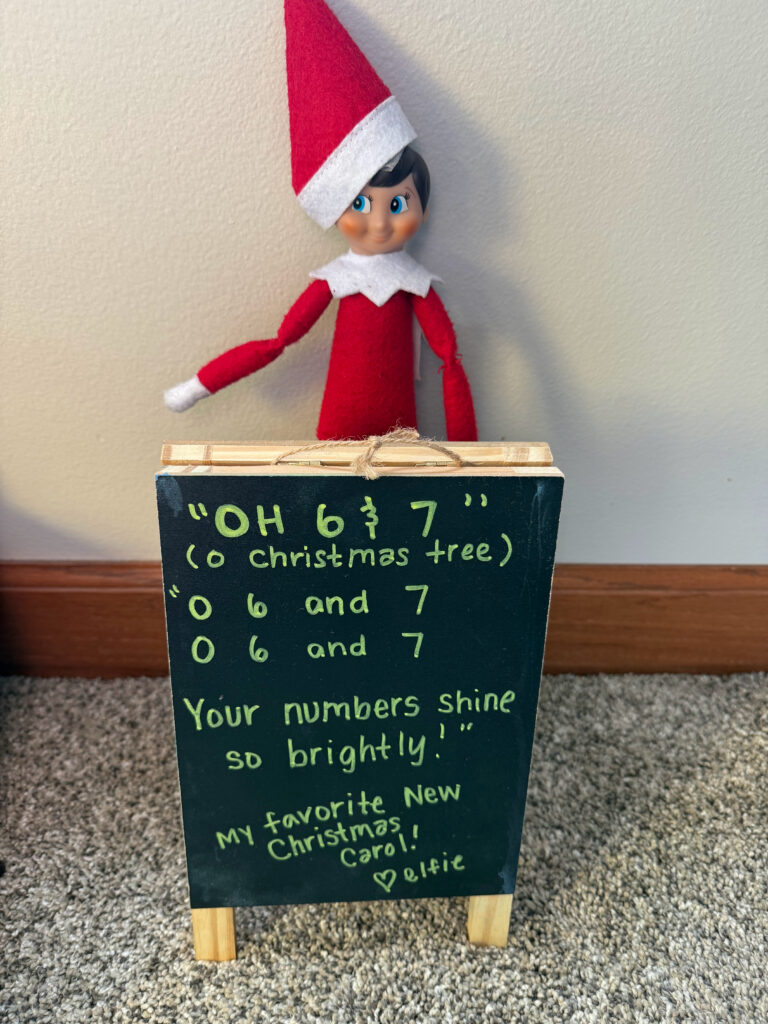 "OH 6 & 7"
(o christmas tree)
"O 6 and 7
O 6 and 7
Your numbers shine
so brightly!"
My favorite New
Christmas
Carol!
♡ elfie